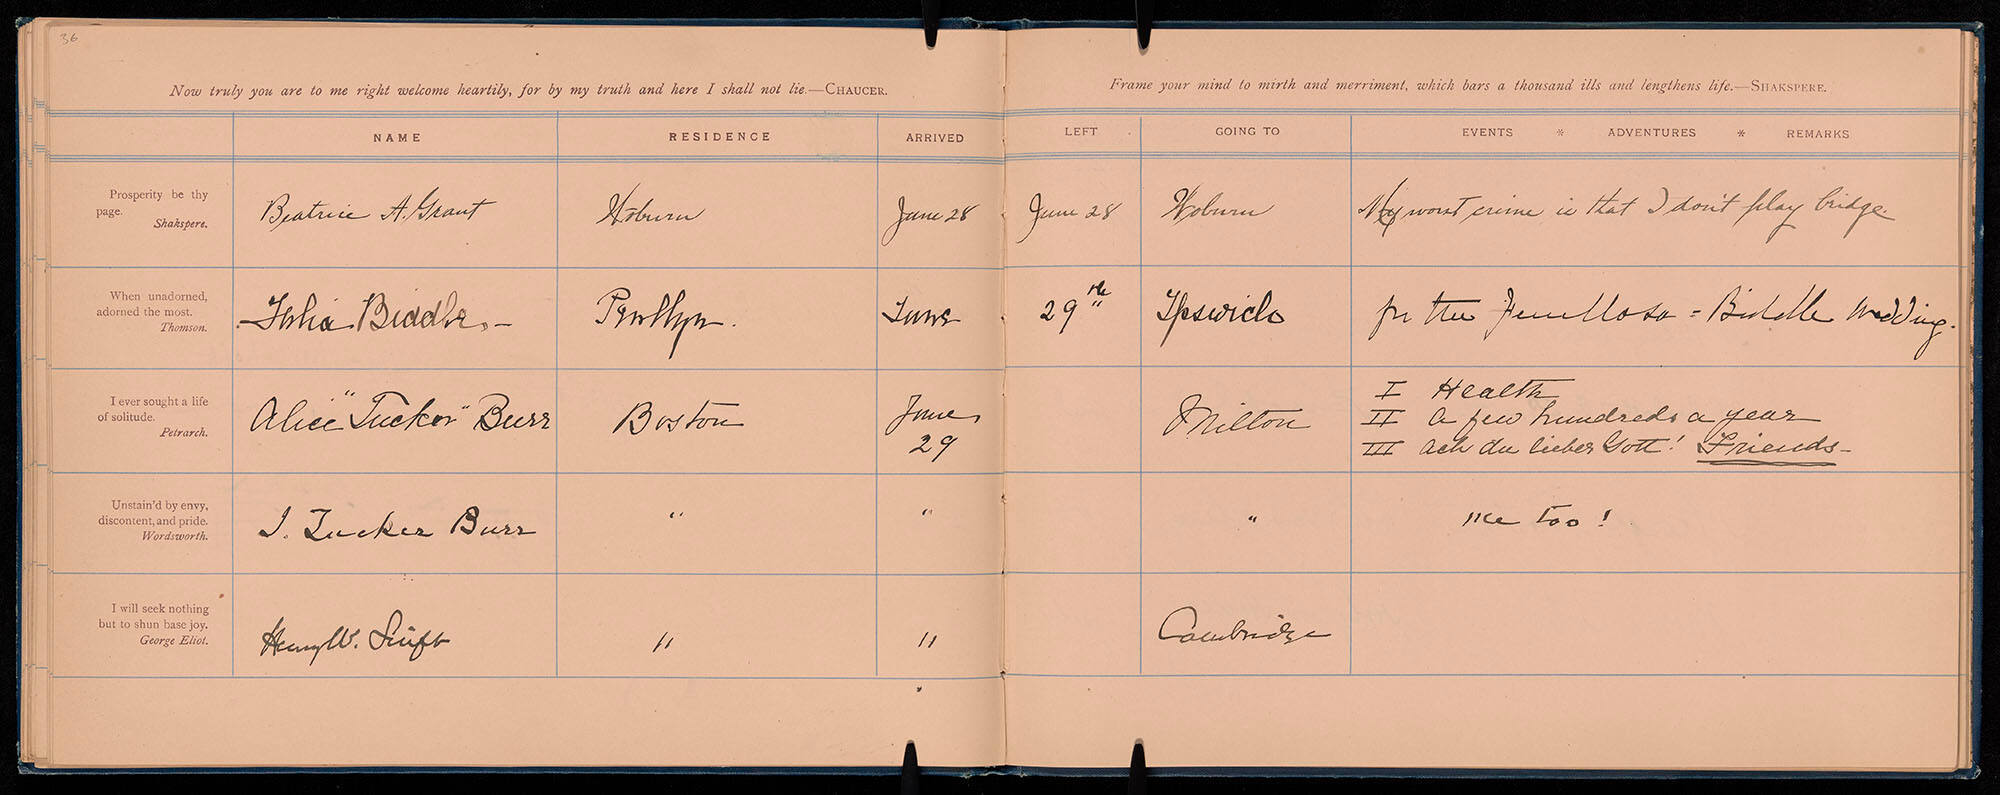 36
Now truly you are to me right welcome heartily, for by my truth and here I shall not lie.—CHAUCER.
NAME RESIDENCE ARRIVED
Prosperity be thy
page.
Shakspere.
Beatrice A. Grant Woburn June 28
When unadorned,
adorned the most.
Thomson.
Biddle. – Penllyn. June
I ever sought a life
of solitude.
Petrarch.
Alice "Tucker" Burr Boston June
29
Unstain'd by envy,
discontent, and pride.
Wordsworth.
I. Tucker Burr " "
I will seek nothing
but to shun base joy.
George Eliot.
Henry W. Swift " "
Frame your mind to mirth and merriment, which bars a thousand ills and lengthens life.—SHAKSPERE.
LEFT GOING TO EVENTS * ADVENTURES * REMARKS
June 28 Woburn My worst crime is that I don't play bridge.
29th Ipswich for the Fenollosa = Biddle Wedding.
Milton
I Health
II A few hundreds a year
III Ach du lieber Gott! Friends –
" Me too!
Cambridge